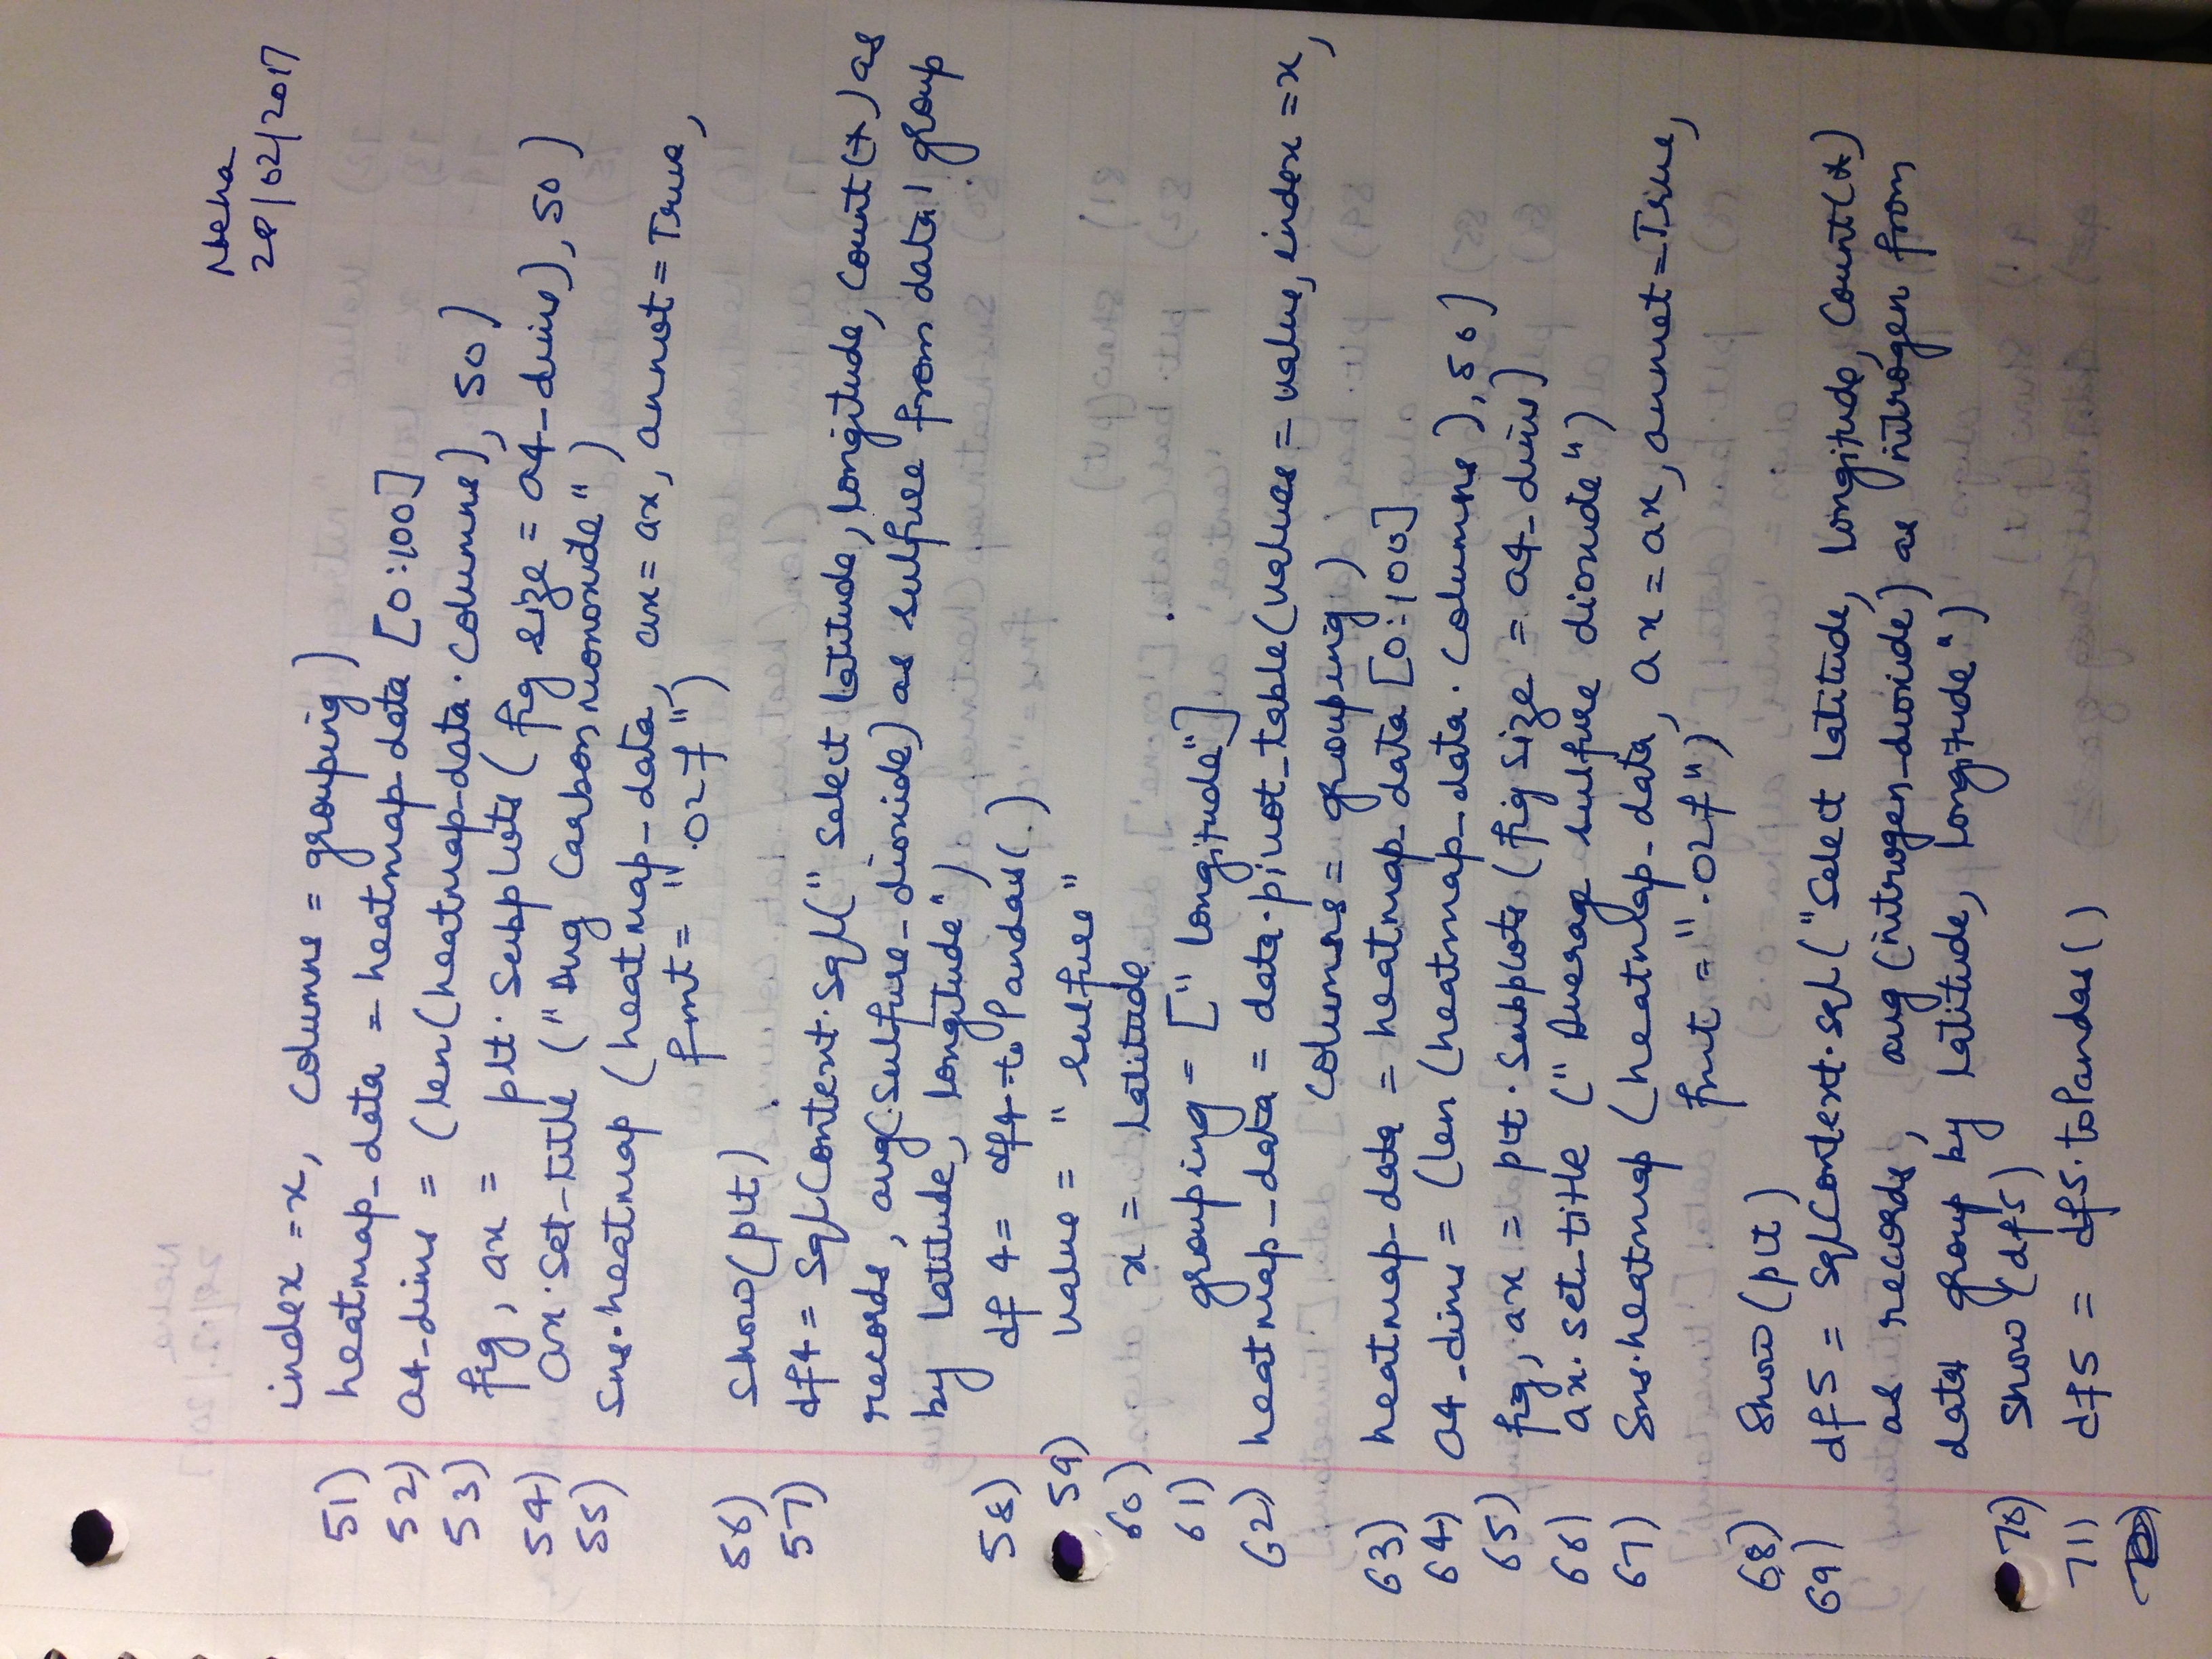 Neha
28/02/2017
index = x, columns = grouping)
51) heatmap_data = heatmap_data [0:100]
52) a4_dims = (len(heatmap_data.columns), 50)
53) fig, ax = plt.subplots (fig size = a4_dims), 50)
54) ax.set_title ("Avg Carbon monoxide")
55) Sns.heatmap (heatmap_data, ax = ax, annot = True,
fmt = ".02f")
56) Show(plt)
57) df4 = SqlContext.sql(" Select latitude, longitude, count(*) as
records, avg(sulfure_dioxide) as sulfure from data1 group
by latitude, longitude")
58) df4 = df4.toPandas()
59) value = "sulfure"
60) x = latitude
61) grouping = ["longitude"]
62) heatmap_data = data.pivot_table(values = value, index = x,
columns = grouping)
63) heatmap_data = heatmap_data [0:100]
64) a4_dims = (len (heatmap_data.columns), 50)
65) fig, ax = plt.subplots (fig size = a4_dims)
66) ax.set_title ("Average sulfure dioxide")
67) Sns.heatmap (heatmap_data, ax = ax, annot = True,
fmt = ".02f")
68) Show (plt)
69) df5 = SqlContext.sql ("Select latitude, longitude, Count(*)
as records, avg (nitrogen_dioxide) as nitrogen from
data1 group by latitude, longitude")
70) Show (df5)
71) df5 = df5.toPandas()